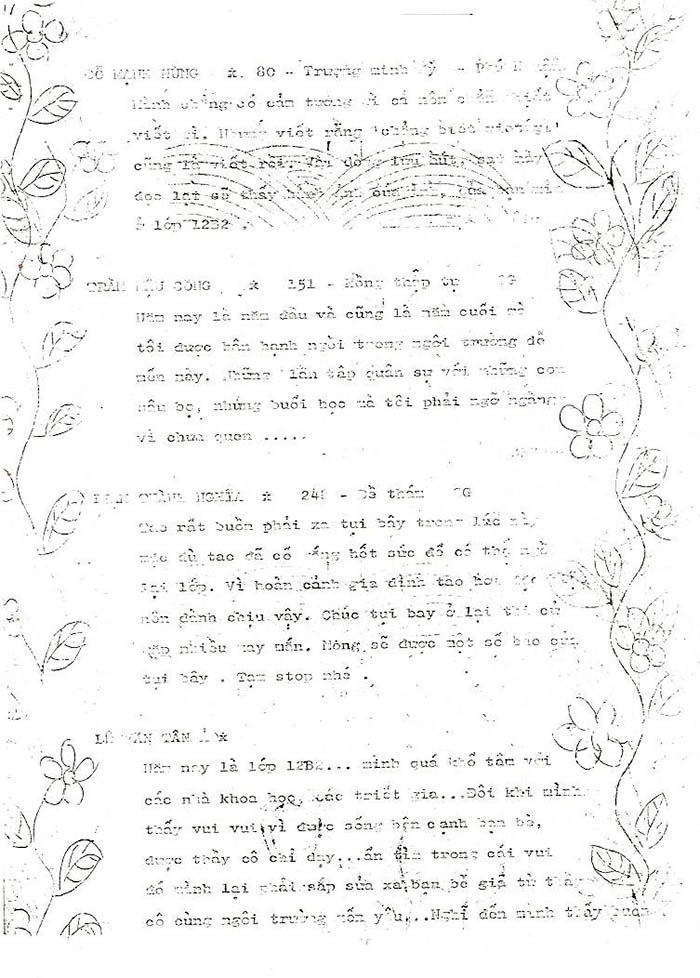 CỖ MẠNH HÙNG * 80 - Trương minh - Phú
Mình chẳng có cảm tưởng gì cả nên chẳng biết
viết gì. Nhưng viết rằng "chẳng biết viết gì"
cũng là viết rồi. Vài dòng lưu bút, sau này
đọc lại sẽ thấy hình ảnh của
ở lớp 12B2 .
TRẦN CÔNG * 151 - Hồng thập tự SG
Năm nay là năm đầu và cũng là năm cuối mà
tôi được hân hạnh ngồi trong ngôi trường đỗ
mến này. Những lần tập quân sự với những con
sâu bọ, những buổi học mà tôi phải ngỡ ngàng
vì chưa quen .....
NGHĨA * 24 - Đề thám SG
Tao rất buồn phải xa tụi bây trong lúc này
mặc dù tao đã cố gắng hết sức để có thể
lại lớp. Vì hoàn cảnh gia đình tao hơi
nên đành chịu vậy. Chúc tụi bay ở lại thi cử
gặp nhiều may mắn. Mong sẽ được một số báo của
tụi bây . Tạm stop nhé .
LÊ VĂN TÂN *
Năm nay là lớp 12B2... mình quá khổ tâm với
các nhà khoa học, các triết gia...Đôi khi mình
thấy vui vui vì được sống bên cạnh bạn bè,
được thầy cô chỉ dạy...ẩn tìm trong cái vui
đó mình lại phải sắp sửa xa bạn bè giả từ thầy
cô cùng ngôi trường mến yêu...Nghĩ đến mình thấy buồn